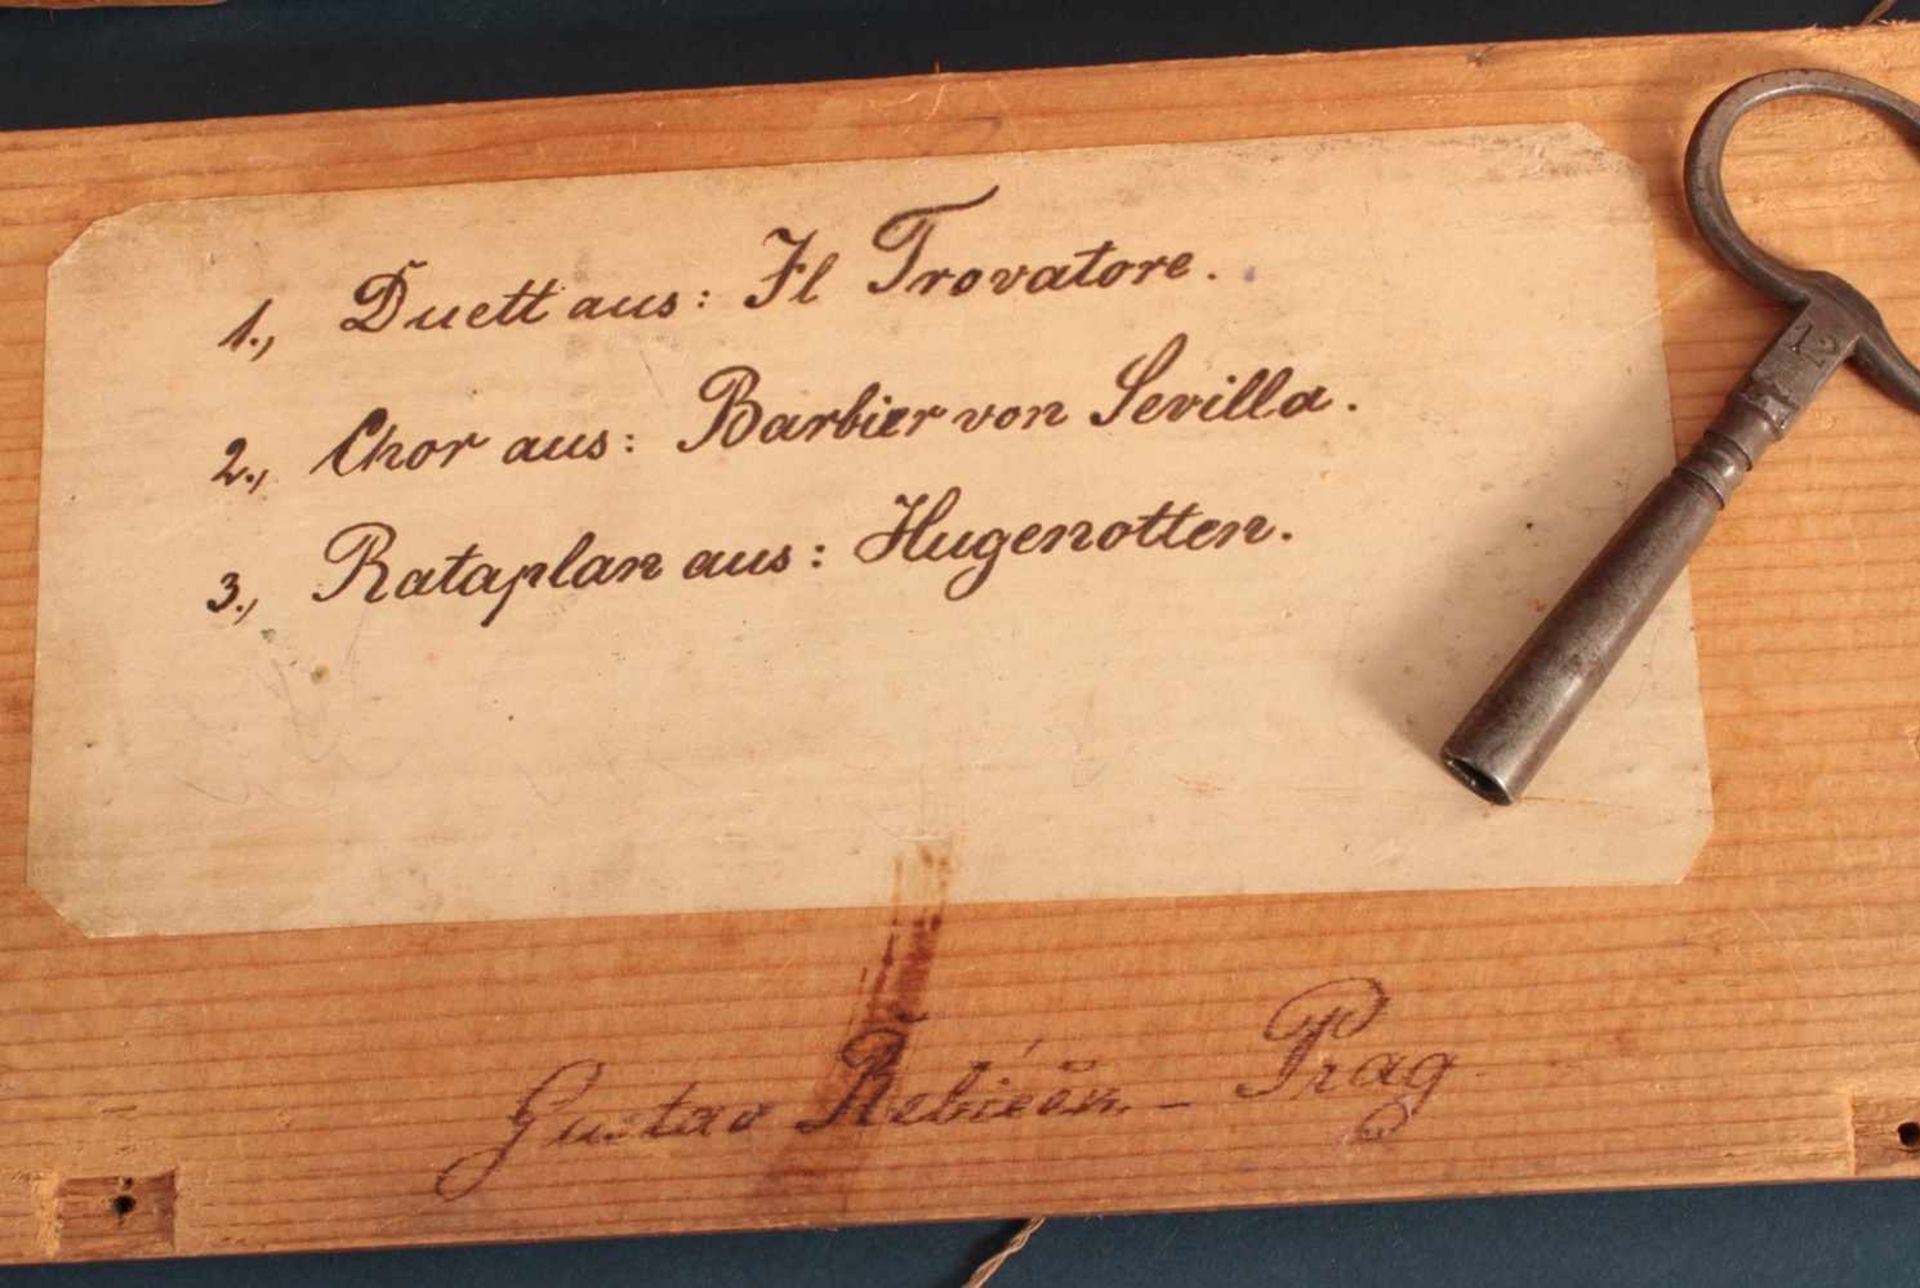 1., Duett aus: Il Trovatore.
2., Chor aus: Barbier von Sevilla.
3., Rataplan aus: Hugenotten.
12
Gustav Řebíček – Prag